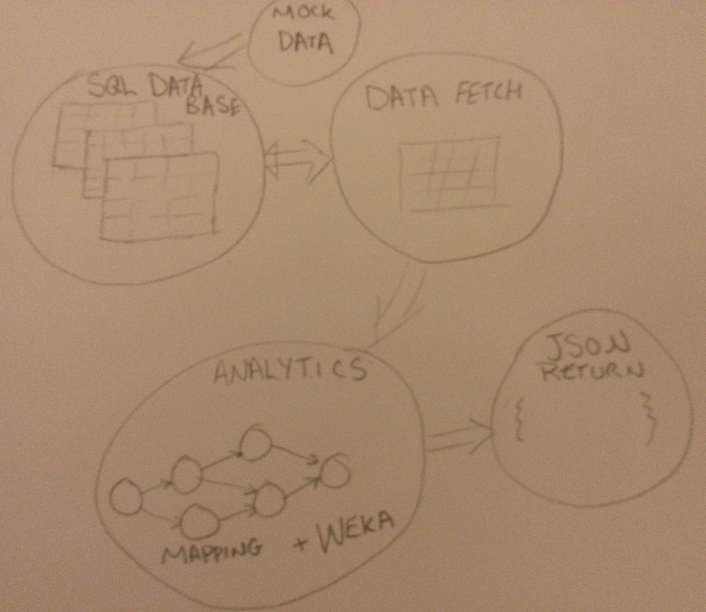 MOCK
DATA
SQL DATA
BASE
DATA FETCH
ANALYTICS
MAPPING + WEKA
JSON
RETURN
{ }